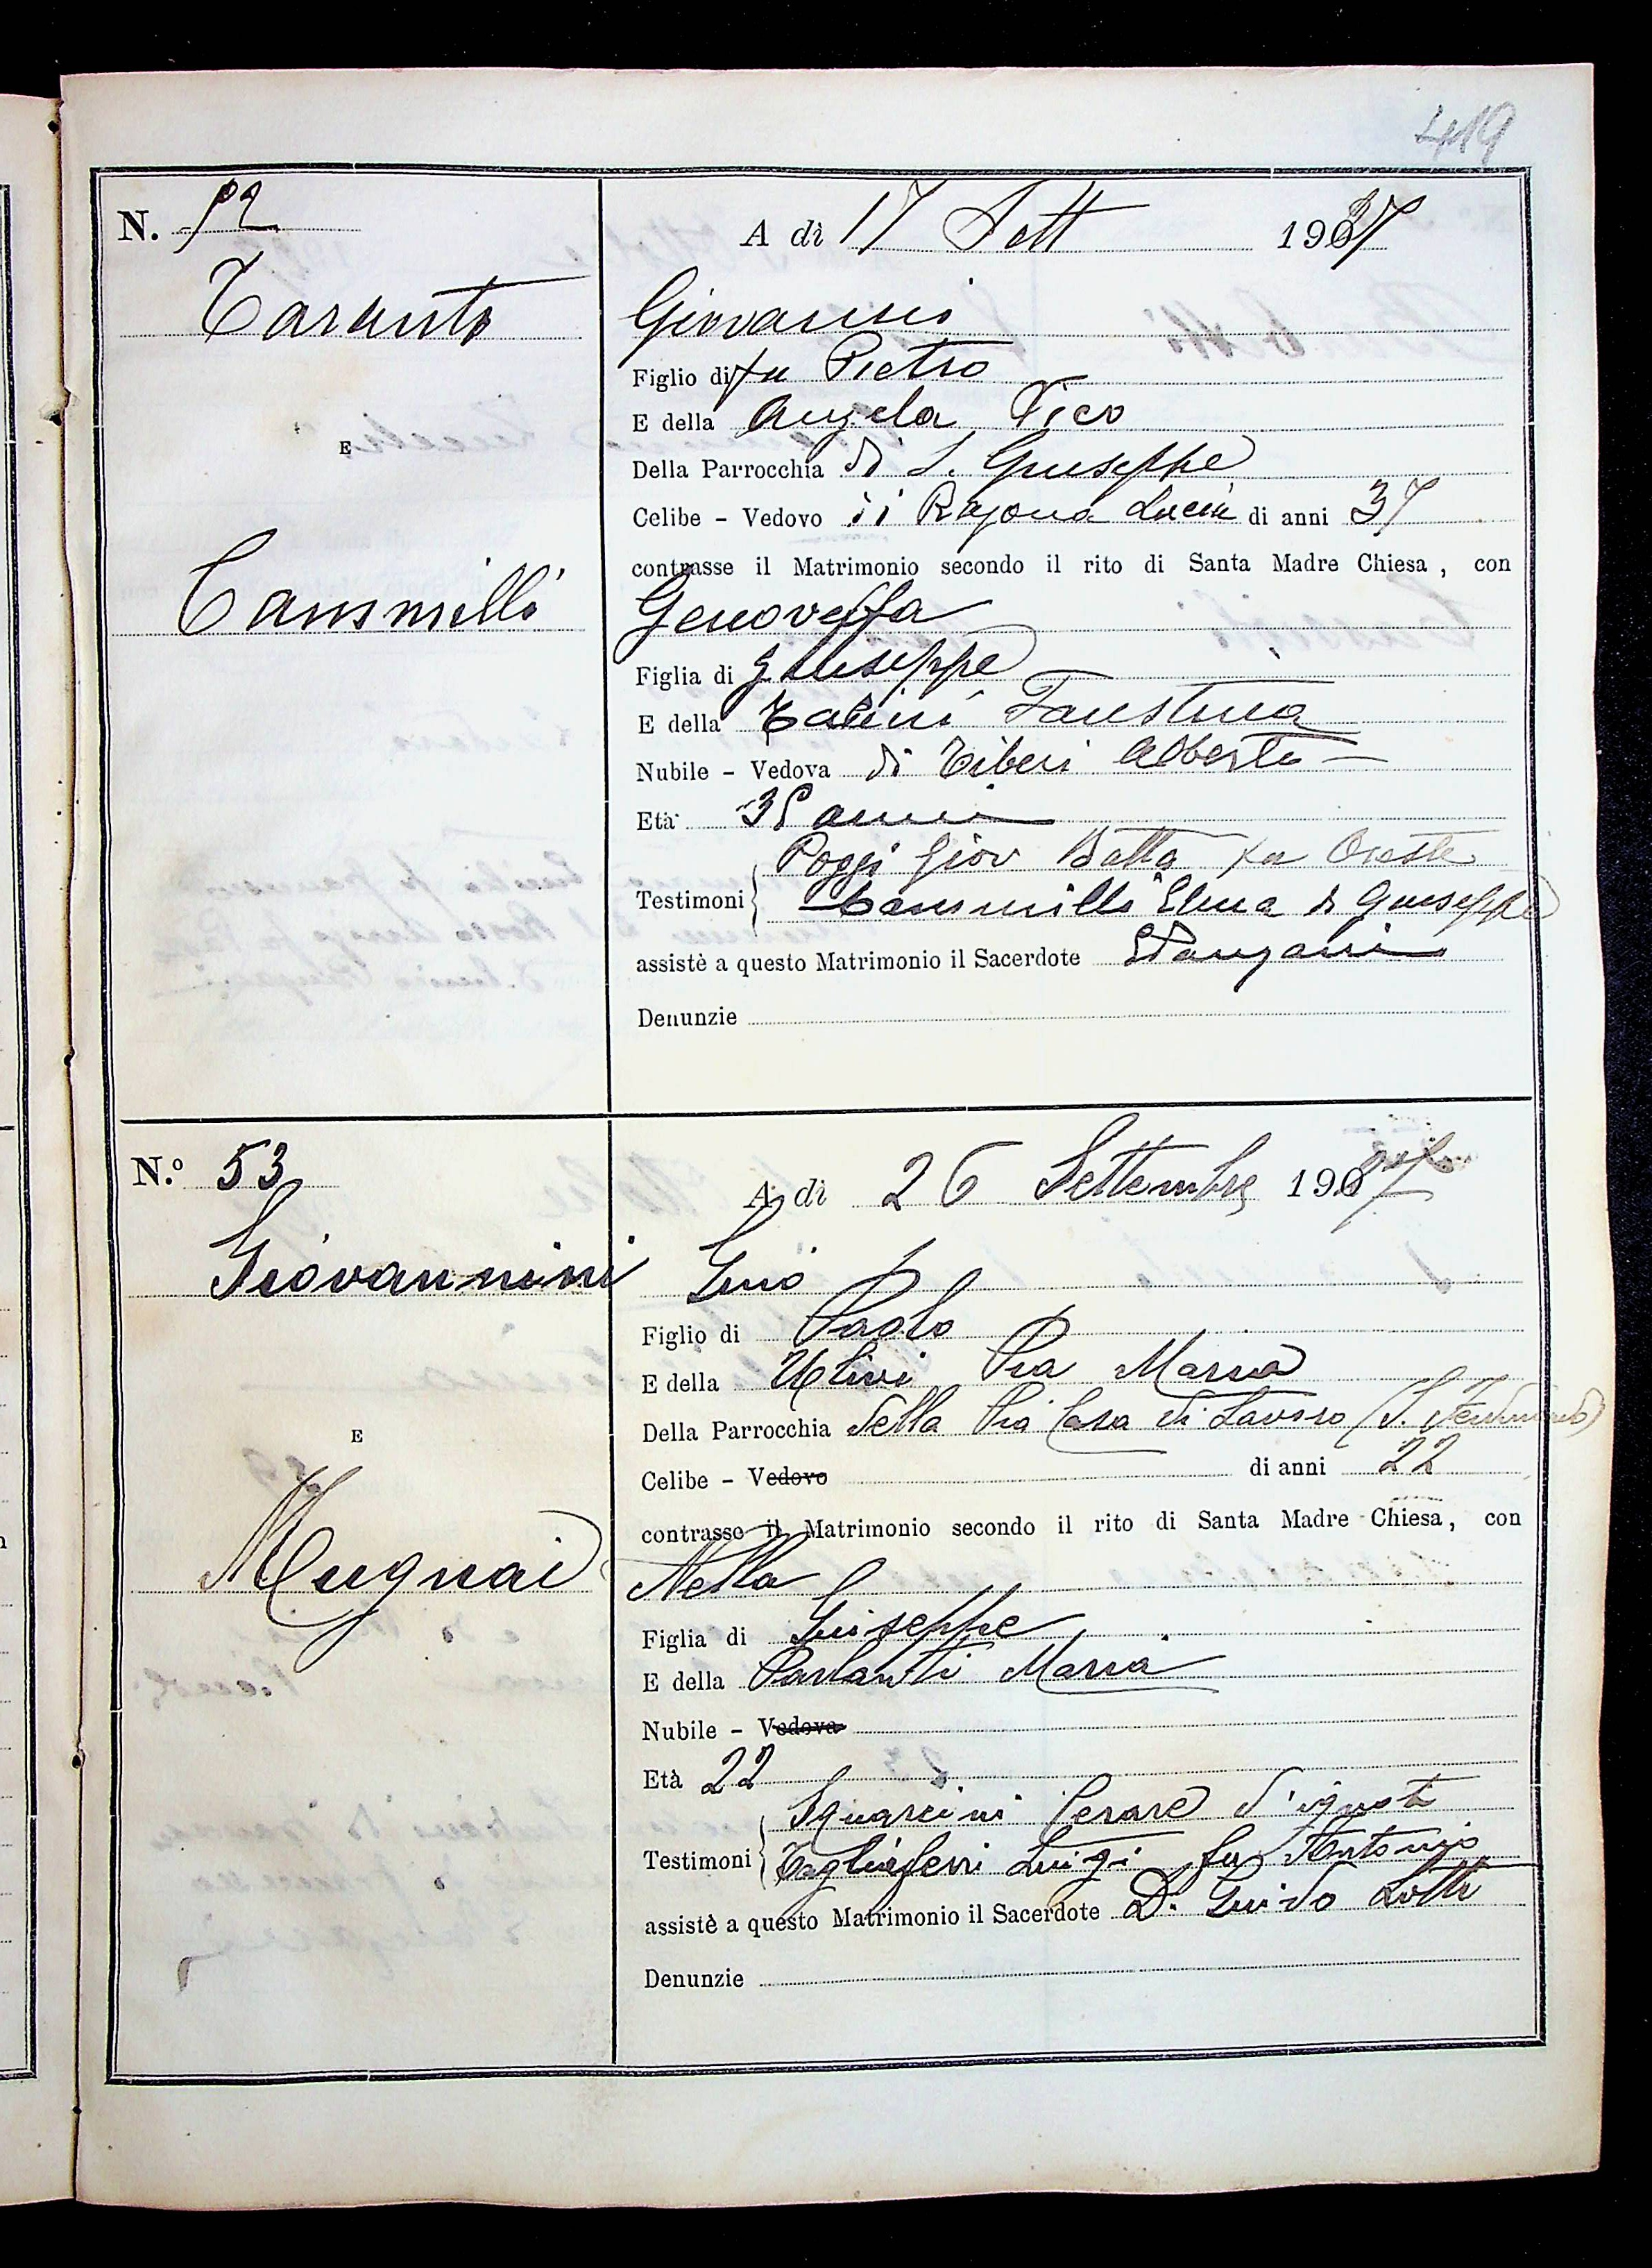 419
N. 52
A dì 17 Sett 1937
Taranto
Giovanni
Figlio di fu Pietro
E della Angela Vico
E
Della Parrocchia di S. Giuseppe
Celibe - Vedovo di Ragona Lucia di anni 37
contrasse il Matrimonio secondo il rito di Santa Madre Chiesa, con
Cammilli
Genoveffa
Figlia di Giuseppe
E della Faustina
Nubile - Vedova di Tiberi Alberto
Età 35 anni
Poggi Giov Batta fu Oreste
Testimoni
Cammilli Elena di Giuseppe
assistè a questo Matrimonio il Sacerdote
Denunzie
N.º 53
A dì 26 Settembre 1937
Giovannini
Gino
Figlio di Paolo
E della Ulivi Pia Maria
Della Parrocchia della Pia Casa di Lavoro (S. Ferdinando)
E
Celibe - Vedovo di anni 22
contrasse il Matrimonio secondo il rito di Santa Madre Chiesa, con
Mugnai
Nella
Figlia di Giuseppe
E della Parlanti Maria
Nubile - Vedova
Età 22
Squarcini Cesare d'ignoti
Testimoni
Tagliaferri Luigi fu Antonio
assistè a questo Matrimonio il Sacerdote D. Guido Lotti
Denunzie